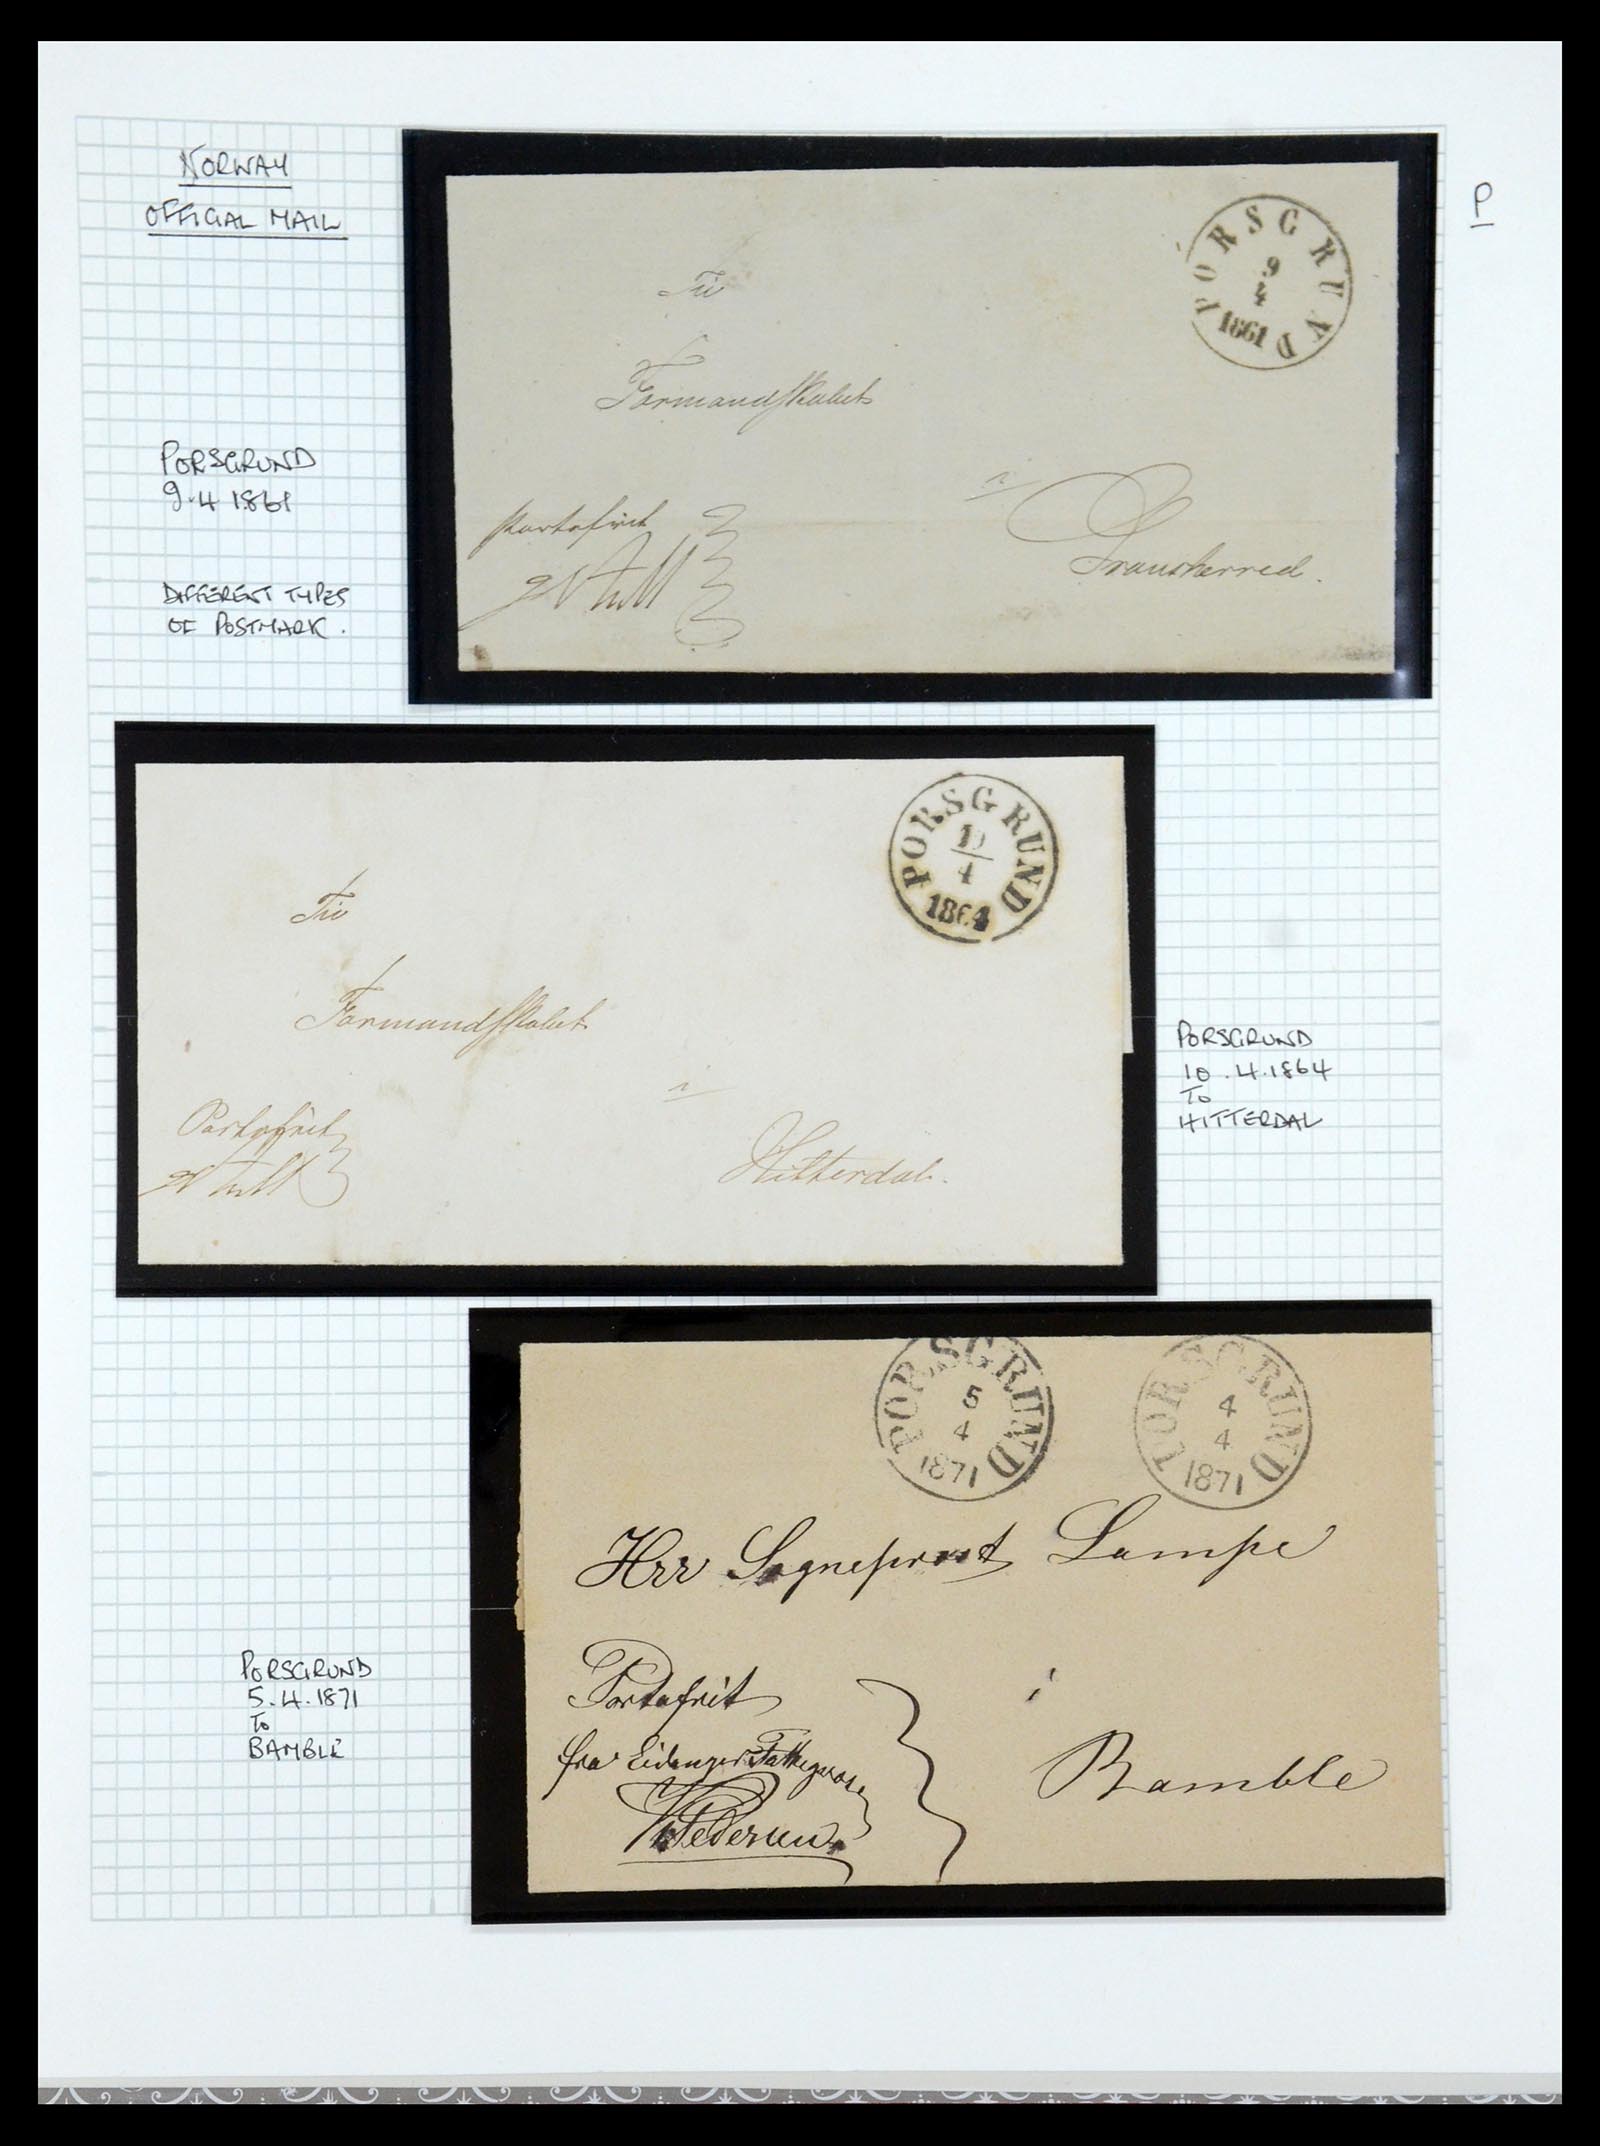 NORWAY
OFFICIAL MAIL
P
PORSGRUND
9
4
1861
Til
Formandskabet
i
Transherred.
Portofrit
PORSGRUND
9.4 1861
DIFFERENT TYPES
OF POSTMARK.
PORSGRUND
10
4
1864
Til
Formandskabet
i
Hitterdal.
Portofrit
PORSGRUND
10.4.1864
TO
HITTERDAL
PORSGRUND
5
4
1871
PORSGRUND
4
4
1871
Hrr Sogneprest Lampe
i
Bamble
Portofrit
fra Eidanger
PORSGRUND
5.4.1871
TO
BAMBLE